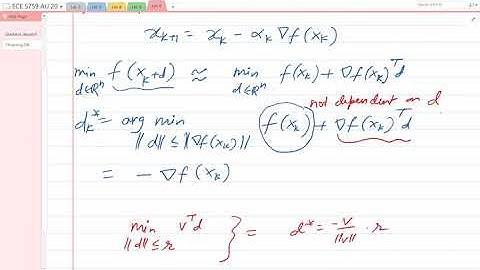 ECE 5759 AU 20
x_{k+1} = x_k - α_k ∇f(x_k)
min_{d∈ℝⁿ} f(x_k+d) ≈ min_{d∈ℝⁿ} f(x_k) + ∇f(x_k)ᵀd
not dependent on d
d_k^* = arg min_{‖d‖ ≤ ‖∇f(x_k)‖} f(x_k) + ∇f(x_k)ᵀd
= - ∇f(x_k)
min_{‖d‖≤r} vᵀd } = d^* = -v/‖v‖ · r